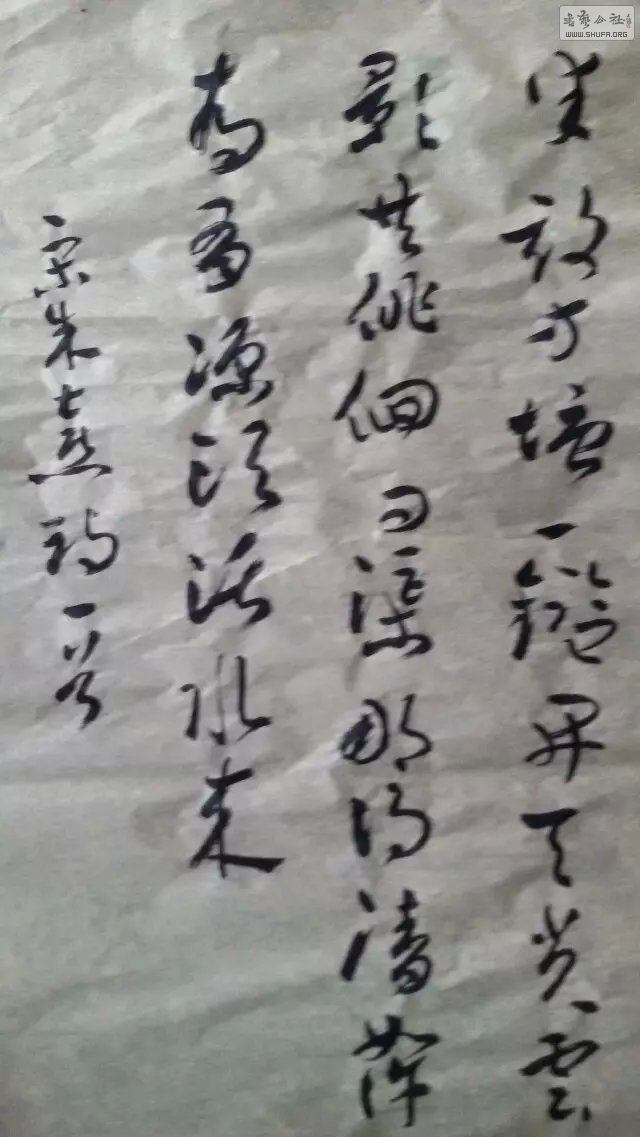 半畝方塘一鑑开天光雲
影共徘徊问渠那得清如许
为有源头活水来
宋朱熹诗一首
书艺公社
WWW.SHUFA.ORG